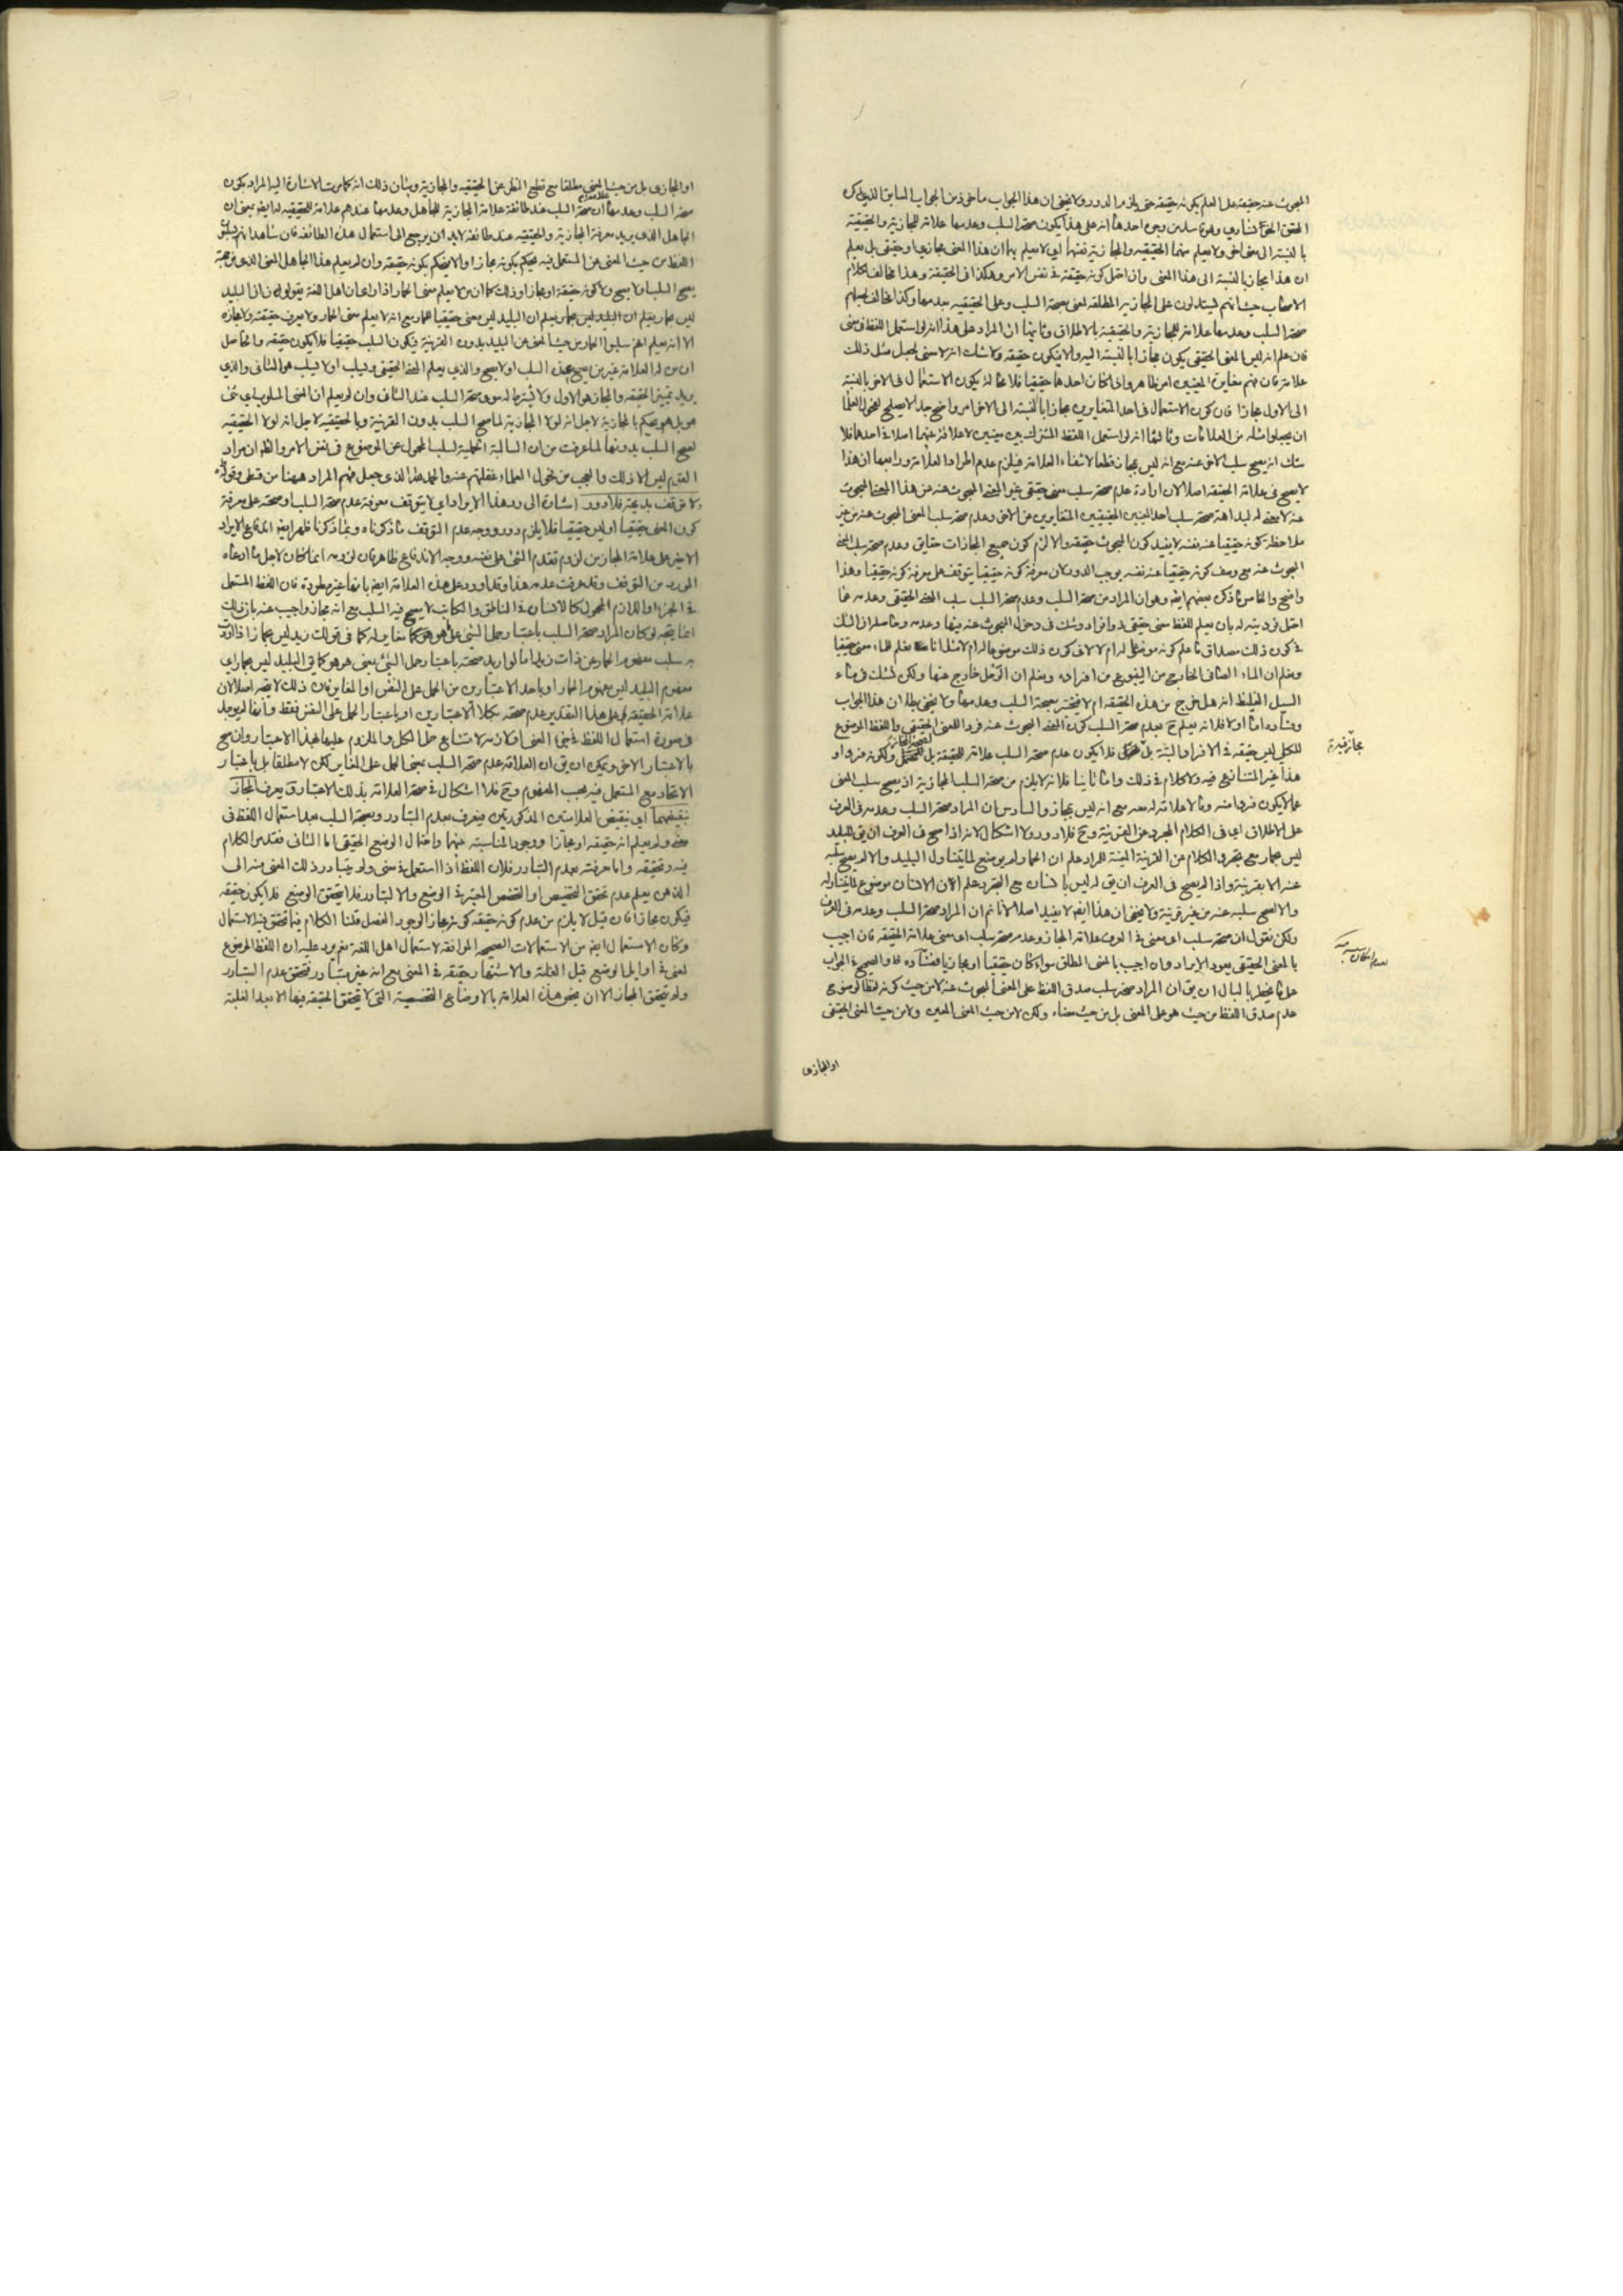 المبحوث عنه حقيقة على العلم بكونه حقيقة حتى يلزم الدور ولا يخفى ان هذا الجواب مأخوذ من الجواب السابق الذي ذكره
المحقق
بالنسبة الى معنى اخر ولا يعلم منهما الحقيقية والمجازية بنفسها اي لا يعلم بها ان هذا المعنى مجازي او حقيقي بل يعلم
ان هذا مجاز بالنسبة الى هذا المعنى وان احتمل كونه حقيقة في نفس الامر وهكذا في الحقيقة وهذا مخالف لكلام
الاصحاب حيث انهم يستدلون على المجازية المطلقة لمعنى بصحة السلب وعلى الحقيقية بعدمها وكذا مخالف لجعلهم
صحة السلب وعدمها علامة للمجازية والحقيقية بالاطلاق وثانيها ان المراد على هذا انه لو استعمل اللفظ في معنى
فان علم انه ليس المعنى الحقيقي يكون مجازا بالنسبة اليه والا فيكون حقيقة ولا شك انه لا معنى لجعل مثل ذلك
علامة فان فهم مغايرة المعنيين امر ظاهر وان كان احدهما حقيقيا فلا محالة يكون الاستعمال في الاخر بالنسبة
الى الاول مجازا فان كون الاستعمال في احد المتغايرين مجازا بالنسبة الى الاخر امر واضح جدا لا يصلح لفحول العلماء
ان يجعلوا مثله من العلامات وثالثها انه لو استعمل اللفظ المشترك بين معنيين لا علاقة بينهما اصلا في احدهما فلا
شك انه يصح سلب الاخر عنه مع انه ليس بمجاز قطعا لانتفاء العلاقة فيلزم عدم اطراد العلامة ورابعها ان هذا
لا يصح في علامة الحقيقة اصلا لان ارادة عدم صحة سلب معنى حقيقي غير المعنى المبحوث عنه عن هذا المعنى المبحوث
عنه لا معنى له لبداهة صحة سلب احد المعنيين الحقيقيين المتغايرين عن الاخر وعدم صحة سلب المعنى المبحوث عنه من غير
ملاحظة كونه حقيقيا عنه نفسه لا يفيد كون المبحوث حقيقة والا لزم كون جميع المجازات حقايق وعدم صحة سلب المعنى
المبحوث عنه مع وصف كونه حقيقيا عنه نفسه يوجب الدور لان معرفة كونه حقيقيا يتوقف على معرفة كونه حقيقيا وهذا
واضح والخامس ما ذكره بعضهم ايضا وهو ان المراد من صحة السلب وعدم صحة السلب سلب المعنى الحقيقي وعدمه عما
احتمل فرديته له بان يعلم للفظ معنى حقيقي ذو افراد وشك في دخول المبحوث عنه فيها وعدمه وحاصله ان الشك
في كون ذلك مصداق ما علم كونه موضوعا له ام لا لا في كون ذلك موضوعا له ام لا مثل انا نعلم للماء معنى حقيقيا
ونعلم ان الماء الصافي الخارج من الينبوع من افراده ونعلم ان الوحل خارج عنها ولكن نشك في ماء
السيل الغليظ انه هل خرج من هذه الحقيقة ام لا فنختبر بصحة السلب وعدمها ولا يخفى عليك ان هذا الجواب
وفساده اما اولا فلانه يعلم ح بعدم صحة السلب كون المعنى المبحوث عنه فردا للمعنى الحقيقي واللفظ الموضوع
للكلي ليس حقيقة في الافراد البتة بل فلا يكون عدم صحة السلب علامة للحقيقة بل ولكونه فردا و
هذا غير المتنازع فيه ولا كلام في ذلك واما ثانيا فلانه لا يلزم من صحة السلب المجازية اذ يصح سلب المعنى
عما لا يكون فردا منه وما لا علاقة له معه مع انه ليس بمجاز والسادس ان المراد صحة السلب وعدمه في العرف
على الاطلاق اي في الكلام المجرد عن القرينة وح فلا دور ولا اشكال لانه اذا صح في العرف ان يق للبليد
ليس بحمار مع تجرد الكلام عن القرينة المعينة للمراد علم ان الحمار لم يوضع لما يتناول البليد والا لم يصح سلبه
عنه الا بقرينة واذا لم يصح في العرف ان يق له ليس بانسان مع التجرد علم ان الانسان موضوع لما يتناوله
والا لصح سلبه عنه من غير قرينة ولا يخفى ان هذا ايضا لا يفيد اصلا لانا نعم ان المراد صحة السلب وعدمه في العرف
ولكن نقول ان صحة سلب اي معنى في العرف علامة المجاز وعدم صحة سلب اي معنى علامة الحقيقة فان اجيب
بالمعنى الحقيقي يعود الايراد وان اجيب بالمعنى المطلق سواء كان حقيقيا او مجازيا ففساده ظاهر والصحيح في الجواب
على ما يخطر بالبال ان يق ان المراد صحة سلب صدق اللفظ على المعنى المبحوث عنه لا من حيث كونه لفظا لوضوح
عدم صدق اللفظ من حيث هو على المعنى بل من حيث معناه ولكن لا من حيث المعنى المعين ولا من حيث المعنى الحقيقي
او المجازي
او المجازي بل من حيث المعنى مطلقا مع قطع النظر عن الحقيقية والمجازية وبيان ذلك انه كما مرت الاشارة اليه المراد بكون
صحة السلب وعدمها ان صحة السلب عند طائفة علامة المجازية للجاهل وعدمها عندهم علامة للحقيقية له ايضا بمعنى ان
الجاهل الذي يريد معرفة المجازية والحقيقية عند طائفة لابد ان يرجع الى استعمال هذه الطائفة فان شاهد انهم
اللفظ من حيث المعنى عن المستعمل فيه يحكم بكونه مجازا والا يحكم بكونه حقيقة وان لم يعلم هذا الجاهل المعنى الذي من جهته
يصح السلب او لا يصح ولا كونه حقيقة او مجازا وذلك كما ان من لا يعلم معنى الحمار اذا راى ان اهل اللغة يقولون ان البليد
ليس بحمار يعلم ان البليد ليس بمعنى حقيقيا للحمار مع انه لا يعلم معنى الحمار ولا يعرف حقيقته ولا مجازه
الا انه يعلم انهم سلبوا الحمار من حيث المعنى عن البليد بدون القرينة فيكون السلب حقيقيا فلا يكون حقيقة والحاصل
ان من له العلامة غير من يصح عنده السلب او لا يصح والذي يعلم المعنى الحقيقي ويسلب او لا يسلب هو الثاني والذي
يريد تمييز الحقيقة والمجاز هو الاول
هو بل هو يحكم بالمجازية لاجل انه لولا المجازية لما صح السلب بدون القرينة وبالحقيقية لاجل انه لولا الحقيقية
لصح السلب بدونها لما عرفت من ان السالبة الحملية لسلب المحمول عن الموضوع في نفس الامر والظاهر ان مراد
القوم ليس الا ذلك والعجب من فحول العلماء وغفلتهم عنه والحمد لله الذي جعل فهم المراد ههنا من قسطي وقوله
ولا توقف بديهة فلا دور اشارة الى رد هذا الايراد اي لا يتوقف معرفة عدم صحة السلب او صحته على معرفة
كون المعنى حقيقيا او ليس حقيقيا فلا يلزم دور ووجه عدم التوقف ما ذكرناه وبما ذكرنا ظهر ايضا اندفاع الايراد
الاخير على علامة المجاز من لزوم تقدم الشيء على نفسه ووجه الاندفاع ظاهر فان لزومه انما كان لاجل ما ادعاه
المورد من التوقف وقد عرفت عدمه هذا وقد اورد على هذه العلامة ايضا بانها غير مطردة فان اللفظ المستعمل
في الجزء او اللازم المحمول كالانسان في الناطق والكاتب لا يصح فيه السلب مع انه مجاز واجيب عنه بان ذلك
انما يتجه لو كان المراد صحة السلب باعتبار حمل الشيء على ما هو مغاير له كما في قولك زيد ليس بحمار اذا اريد
به سلب مفهوم الحمار عن ذات زيد اما لو اريد صحته باعتبار حمل الشيء بمعنى هو هو كما في البليد ليس بحمار اي
مفهوم البليد ليس مفهوم الحمار او باحد الاعتبارين من الحمل على النفس او المغاير فان ذلك لا يضر اصلا لان
علامة الحقيقة على هذا التقدير عدم صحته بكلا الاعتبارين او باعتبار الحمل على النفس فقط
في صورة استعمال اللفظ في جزء المعنى او لازمه لامتناع حمل الكل والملزوم عليهما بهذا الاعتبار وان صح
بالاعتبار الاخر ويمكن ان يق ان العلامة عدم صحة السلب بمعنى الحمل على المغاير لكن لا مطلقا بل باعتبار
الاتحاد مع المستعمل فيه بحسب المفهوم وح فلا اشكال في صحة العلامة بذلك الاعتبار ق يعرف المجاز
بنقيضهما اي بنقيض العلامتين المذكورتين فيعرف بعدم التبادر وبصحة السلب بعد استعمال اللفظ في
معنى ولم يعلم انه حقيقة او مجاز ووجود المناسبة بينهما واحتمال الوضع الحقيقي اما الثاني فقد مر الكلام
فيه وتحقيقه واما معرفته بعدم التبادر فلان اللفظ اذا استعمل في معنى ولم يتبادر ذلك المعنى منه الى
الذهن يعلم عدم تحقق التخصيص او التخصص المعتبر في الوضع والا لتبادر فلا يتحقق الوضع فلا يكون حقيقة
فيكون مجازا فان قيل لا يلزم من عدم كونه حقيقة كونه مجازا لوجود الفصل قلنا الكلام فيما تحقق فيه الاستعمال
وكان الاستعمال ايضا من الاستعمالات الصحيحة الموافقة لاستعمال اهل اللغة نعم يرد عليه ان اللفظ الموضوع
لمعنى في اوايل الوضع قبل الغلبة والاشتهار حقيقة في المعنى مع انه غير متبادر فتحقق عدم التبادر
ولم يتحقق المجاز الا ان يخص هذه العلامة بالاوضاع التخصصية التي لا تتحقق الحقيقة فيها الا بعد الغلبة